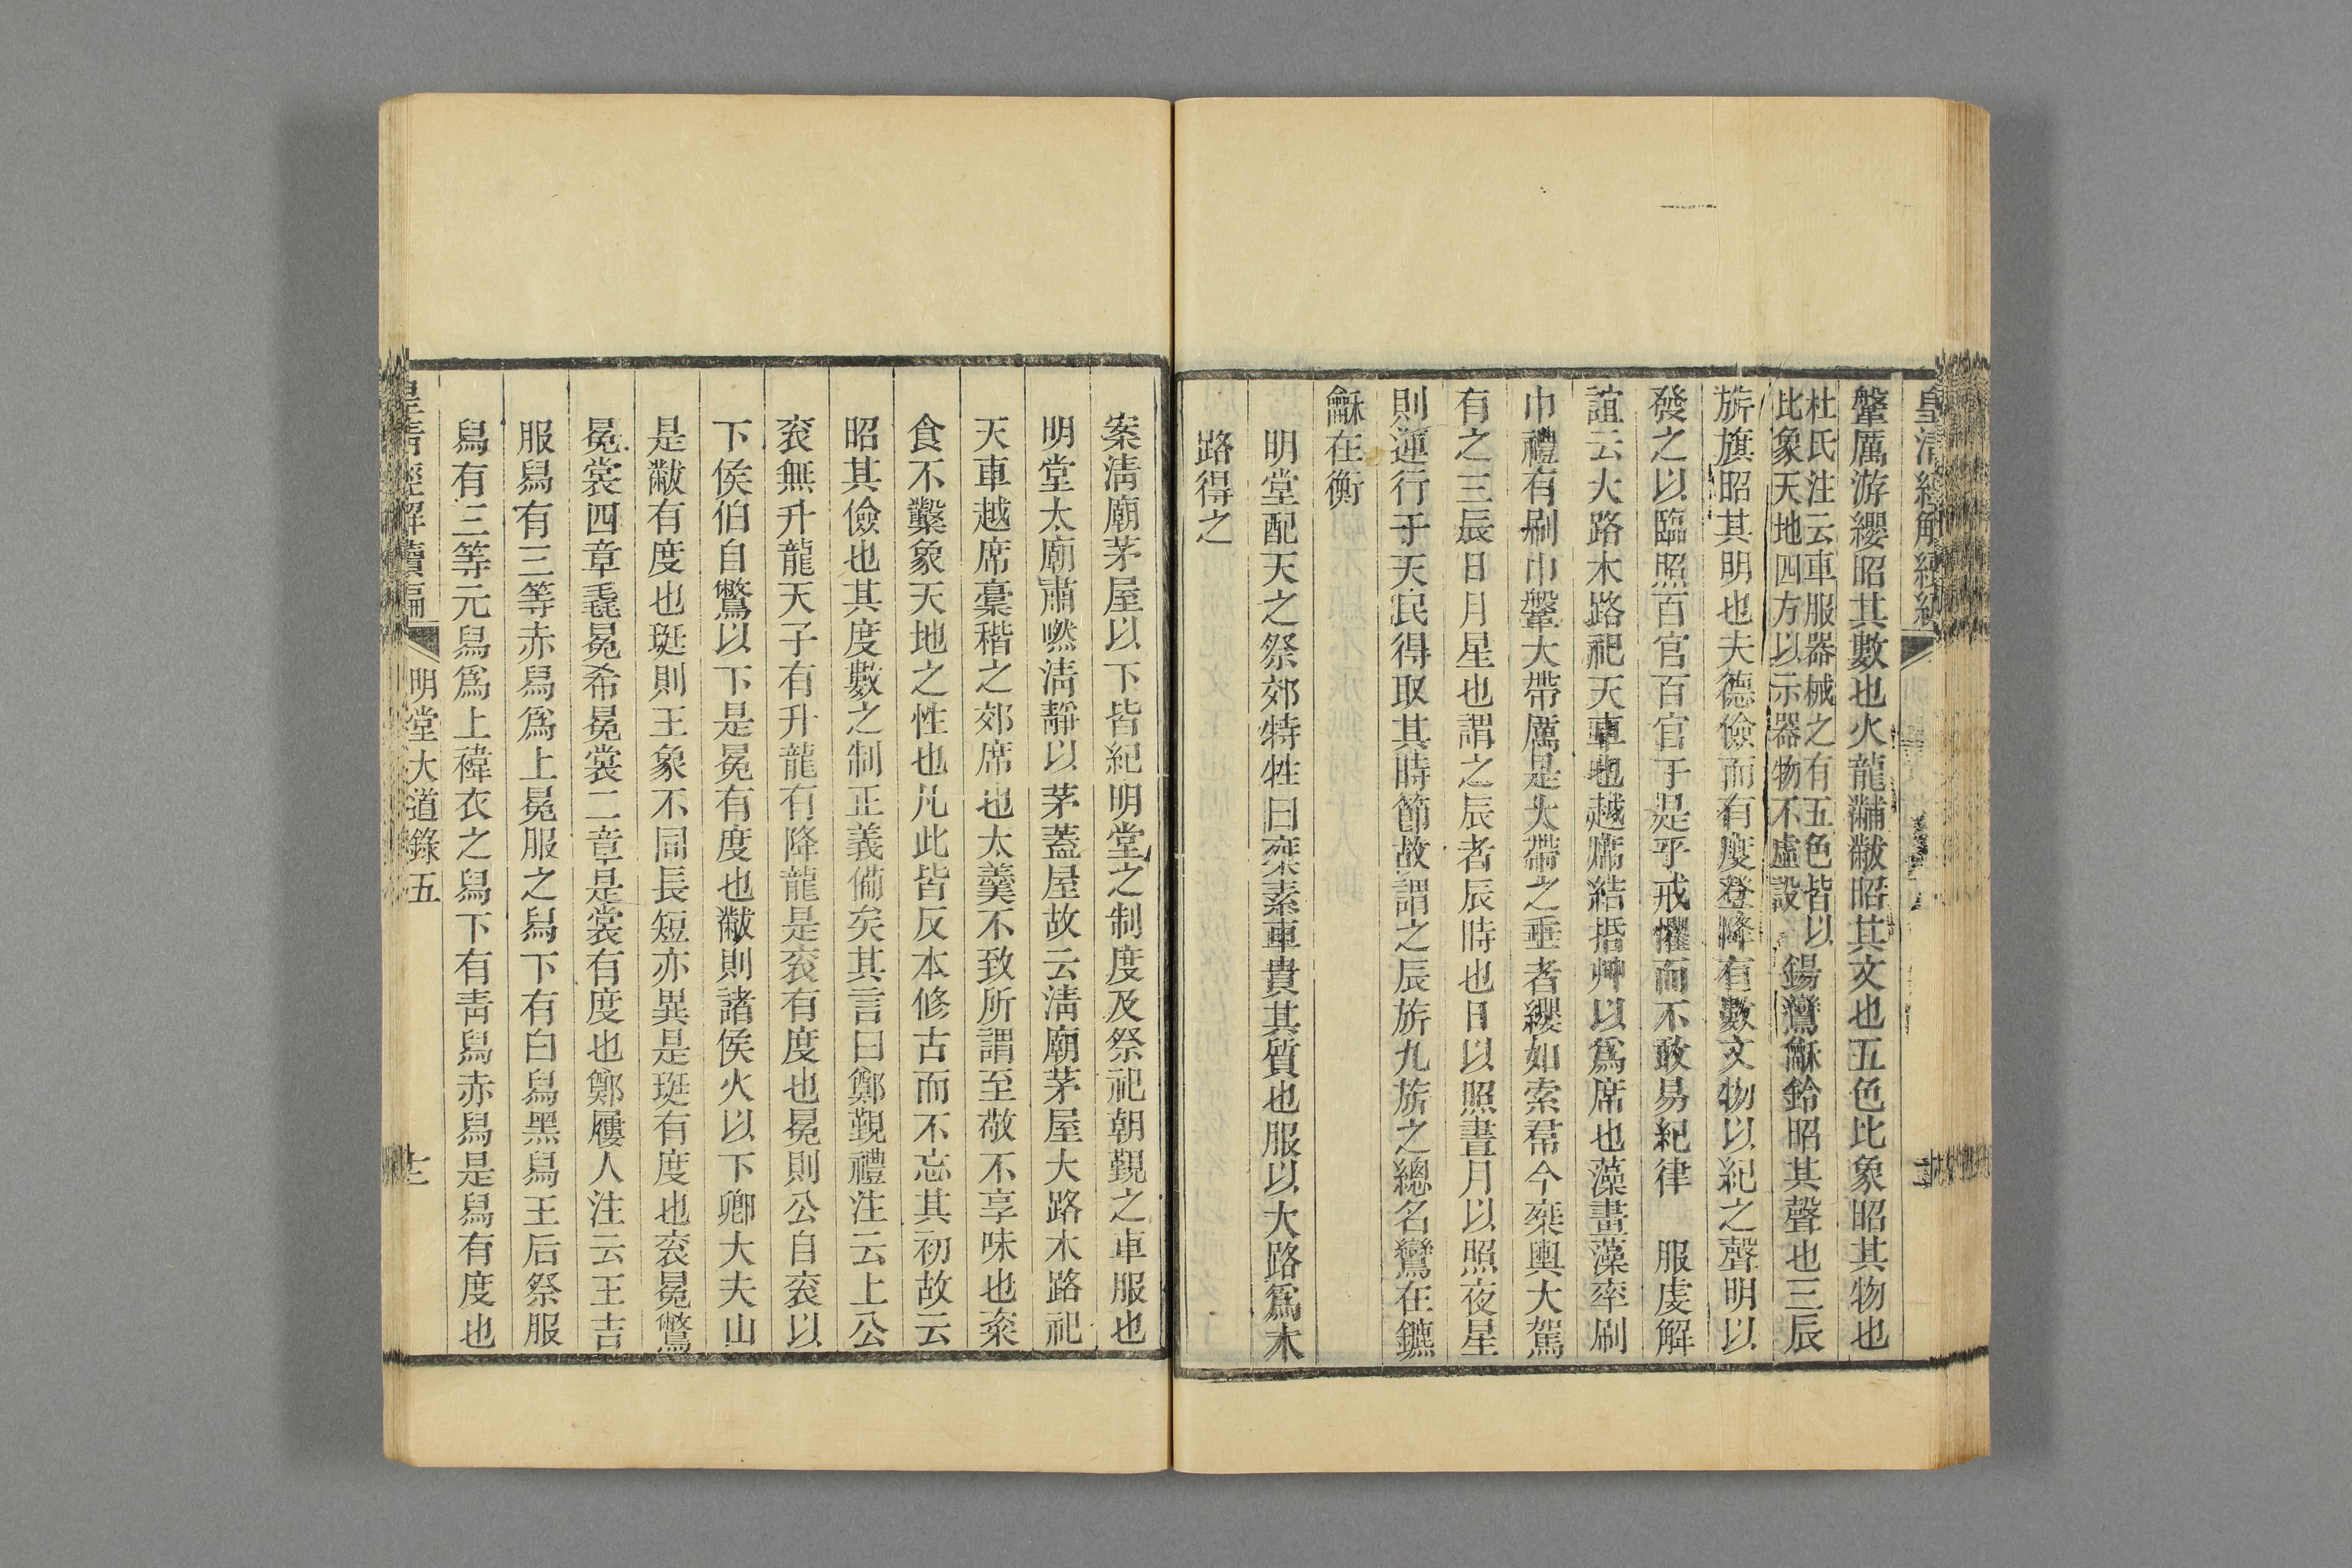 皇清經解續編
鞶厲游纓昭其數也火龍黼黻昭其文也五色比象昭其物也
杜氏注云車服器械之有五色皆以
比象天地四方以示器物不虛設
鍚鸞龢鈴昭其聲也三辰
旂旗昭其明也夫德儉而有度登降有數文物以紀之聲明以
發之以臨照百官百官于是乎戒懼而不敢易紀律　服虔解
誼云大路木路祀天車也越席結括艸以爲席也藻畫藻率刷
巾禮有刷巾鞶大帶厲是大帶之垂者纓如索帬今椉輿大駕
有之三辰日月星也謂之辰者辰時也日以照晝月以照夜星
則運行于天民得取其時節故謂之辰旂九旂之總名鸞在鑣
龢在衡
明堂配天之祭郊特牲曰椉素車貴其質也服以大路爲木
路得之
案淸廟茅屋以下皆紀明堂之制度及祭祀朝覲之車服也
明堂太廟肅㦡淸靜以茅蓋屋故云淸廟茅屋大路木路祀
天車越席稾秸之郊席也太羹不致所謂至敬不享味也粢
食不鑿象天地之性也凡此皆反本修古而不忘其初故云
昭其儉也其度數之制正義備矣其言曰鄭覲禮注云上公
衮無升龍天子有升龍有降龍是衮有度也冕則公自衮以
下侯伯自鷩以下是冕有度也黻則諸侯火以下卿大夫山
是黻有度也珽則王象不同長短亦異是珽有度也衮冕鷩
冕裳四章毳冕希冕裳二章是裳有度也鄭屨人注云王吉
服舄有三等赤舄爲上冕服之舄下有白舄黑舄王后祭服
舄有三等元舄爲上褘衣之舄下有靑舄赤舄是舄有度也
皇淸經解續編　明堂大道錄五